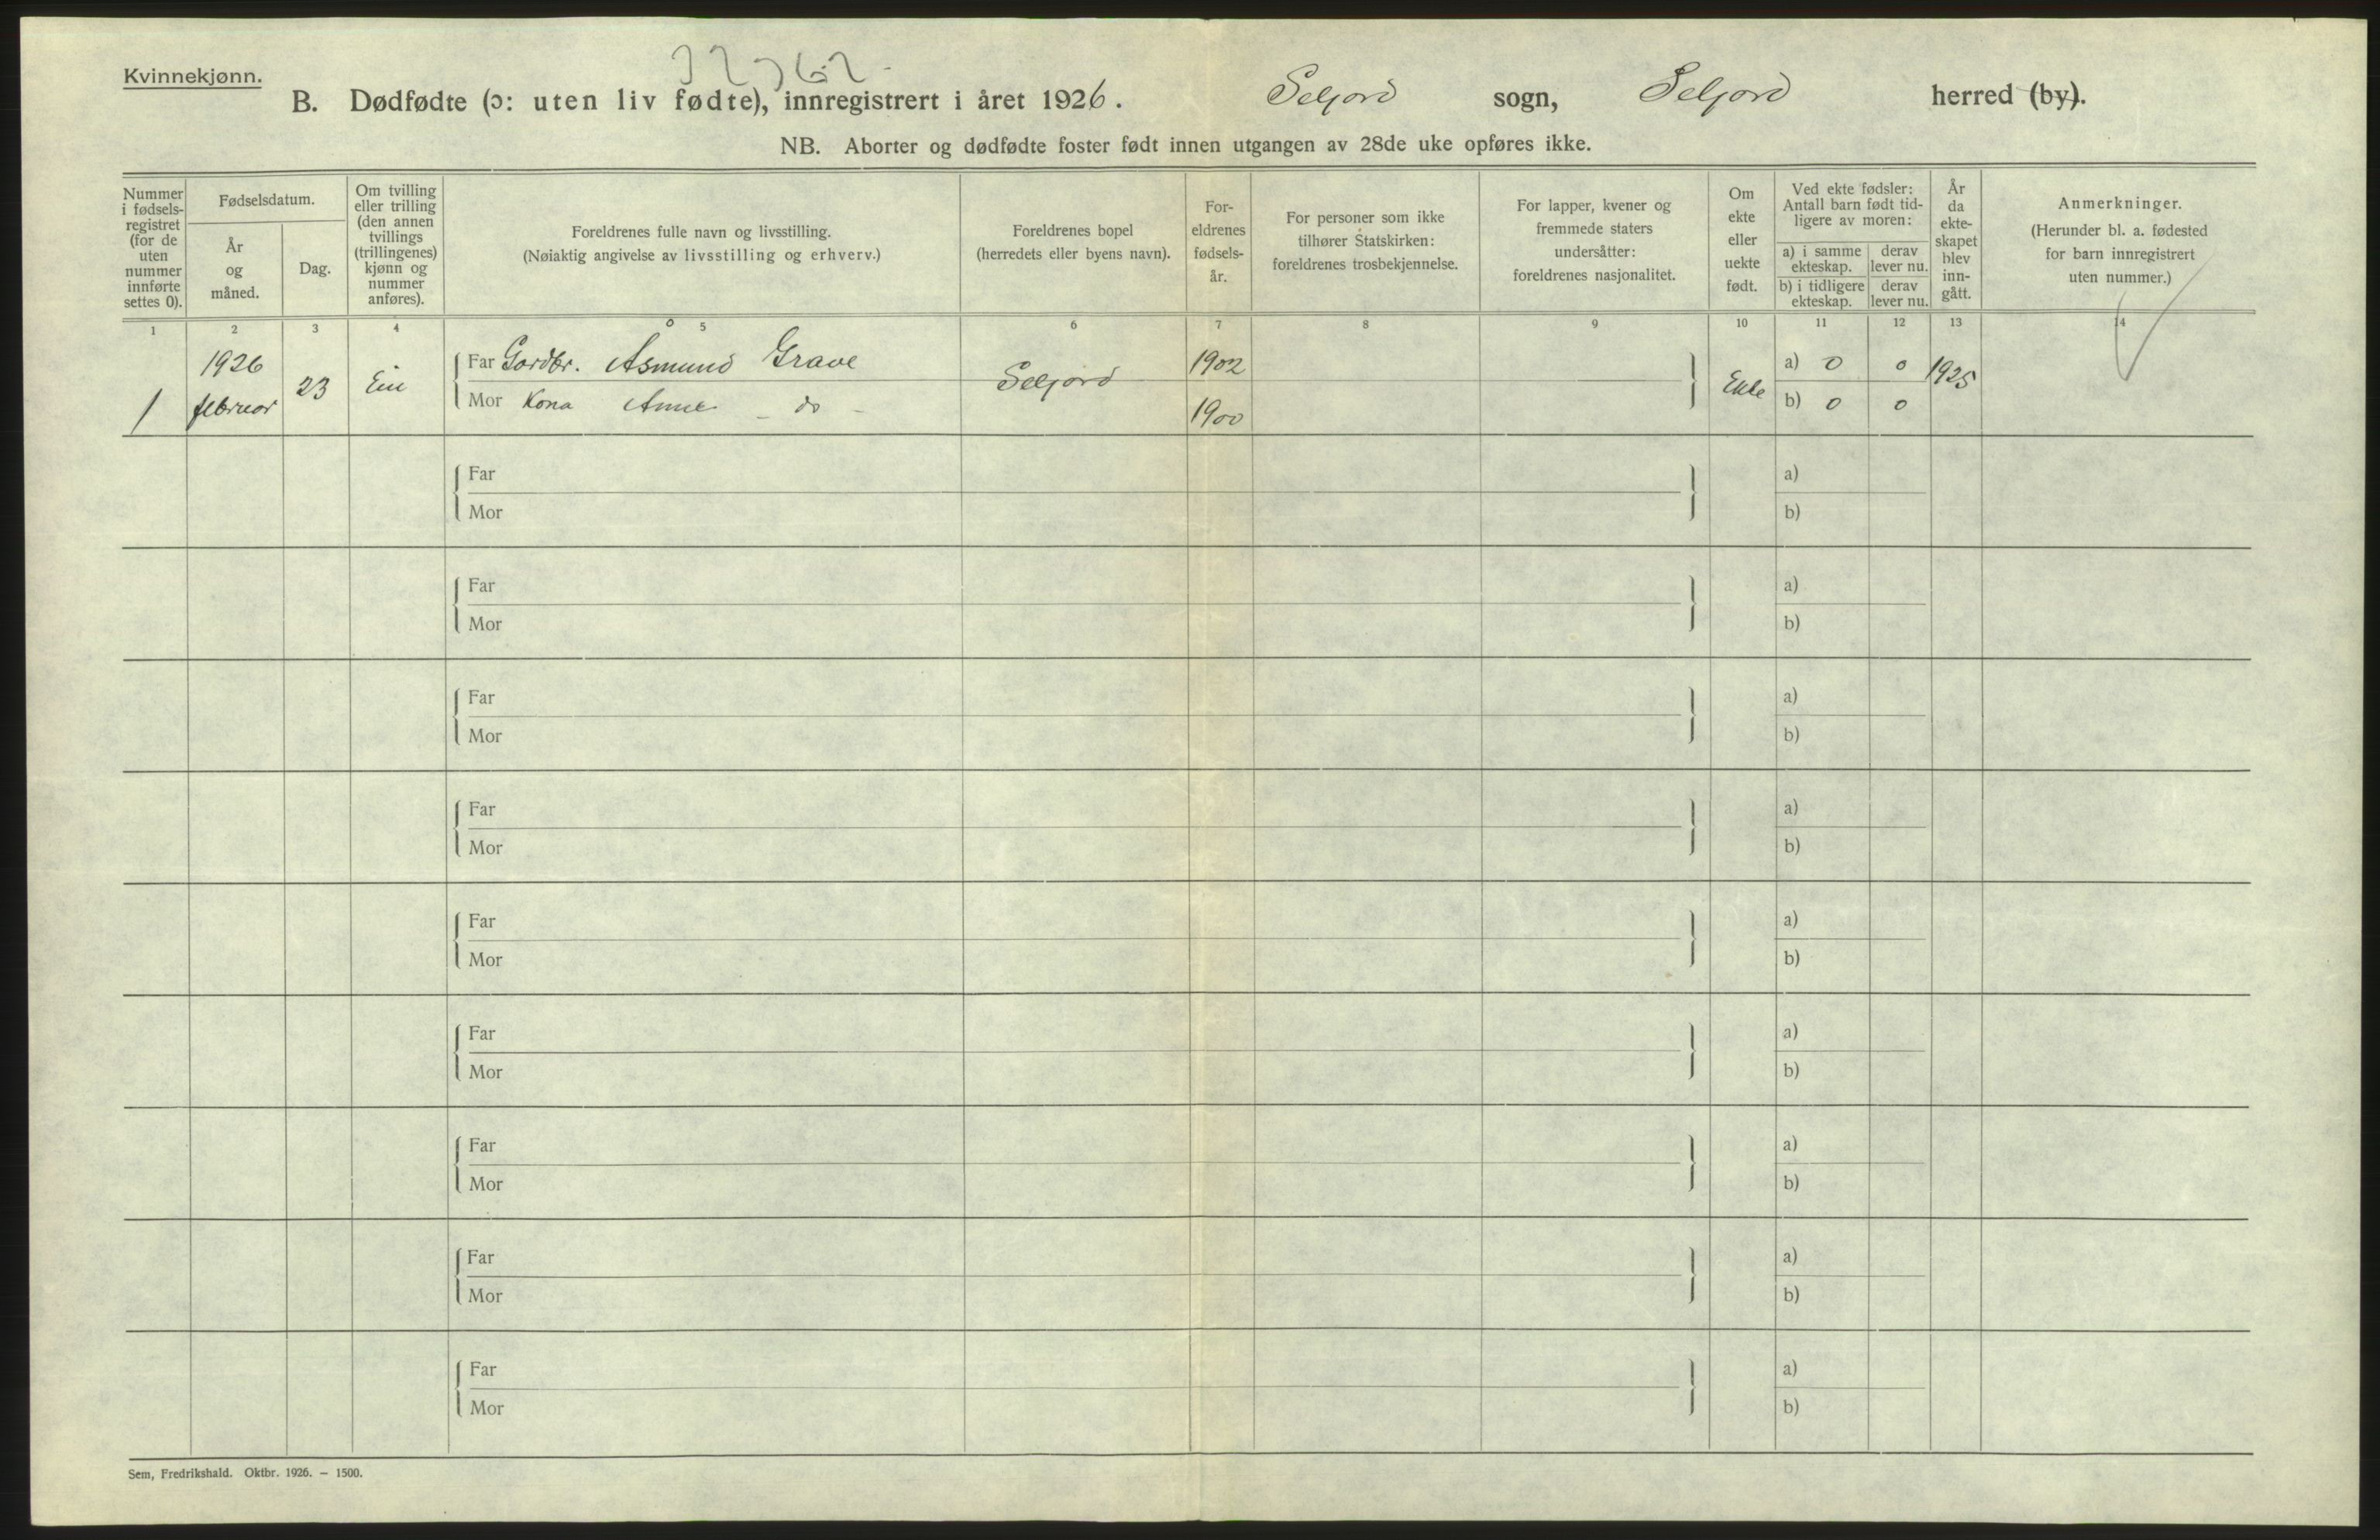 Kvinnekjønn.
B. Dødfødte (ɔ: uten liv fødte), innregistrert i året 1926. Seljord sogn, Seljord herred (by).
NB. Aborter og dødfødte foster født innen utgangen av 28de uke opføres ikke.
Nummer
i fødsels-
registret
(for de
uten
nummer
innførte
settes 0).
Fødselsdatum.
År
og
måned.
Dag.
Om tvilling
eller trilling
(den annen
tvillings
(trillingenes)
kjønn og
nummer
anføres).
Foreldrenes fulle navn og livsstilling.
(Nøiaktig angivelse av livsstilling og erhverv.)
Foreldrenes bopel
(herredets eller byens navn).
For-
eldrenes
fødsels-
år.
For personer som ikke
tilhører Statskirken:
foreldrenes trosbekjennelse.
For lapper, kvener og
fremmede staters
undersåtter:
foreldrenes nasjonalitet.
Om
ekte
eller
uekte
født.
Ved ekte fødsler:
Antall barn født tid-
ligere av moren:
a) i samme
ekteskap.
derav
lever nu.
b) i tidligere
ekteskap.
derav
lever nu.
År
da
ekte-
skapet
blev
inn-
gått.
Anmerkninger.
(Herunder bl. a. fødested
for barn innregistrert
uten nummer.)
1 2 3 4 5 6 7 8 9 10 11 12 13 14
1 1926 februar 23 Ein
Far Gardbr. Åsmund Grave Seljord 1902 Ekte a) 0 0 1925
Mor Kona Anne - do - 1900 b) 0 0
Far a)
Mor b)
Far a)
Mor b)
Far a)
Mor b)
Far a)
Mor b)
Far a)
Mor b)
Far a)
Mor b)
Far a)
Mor b)
Far a)
Mor b)
Far a)
Mor b)
Sem, Fredrikshald. Oktbr. 1926. – 1500.